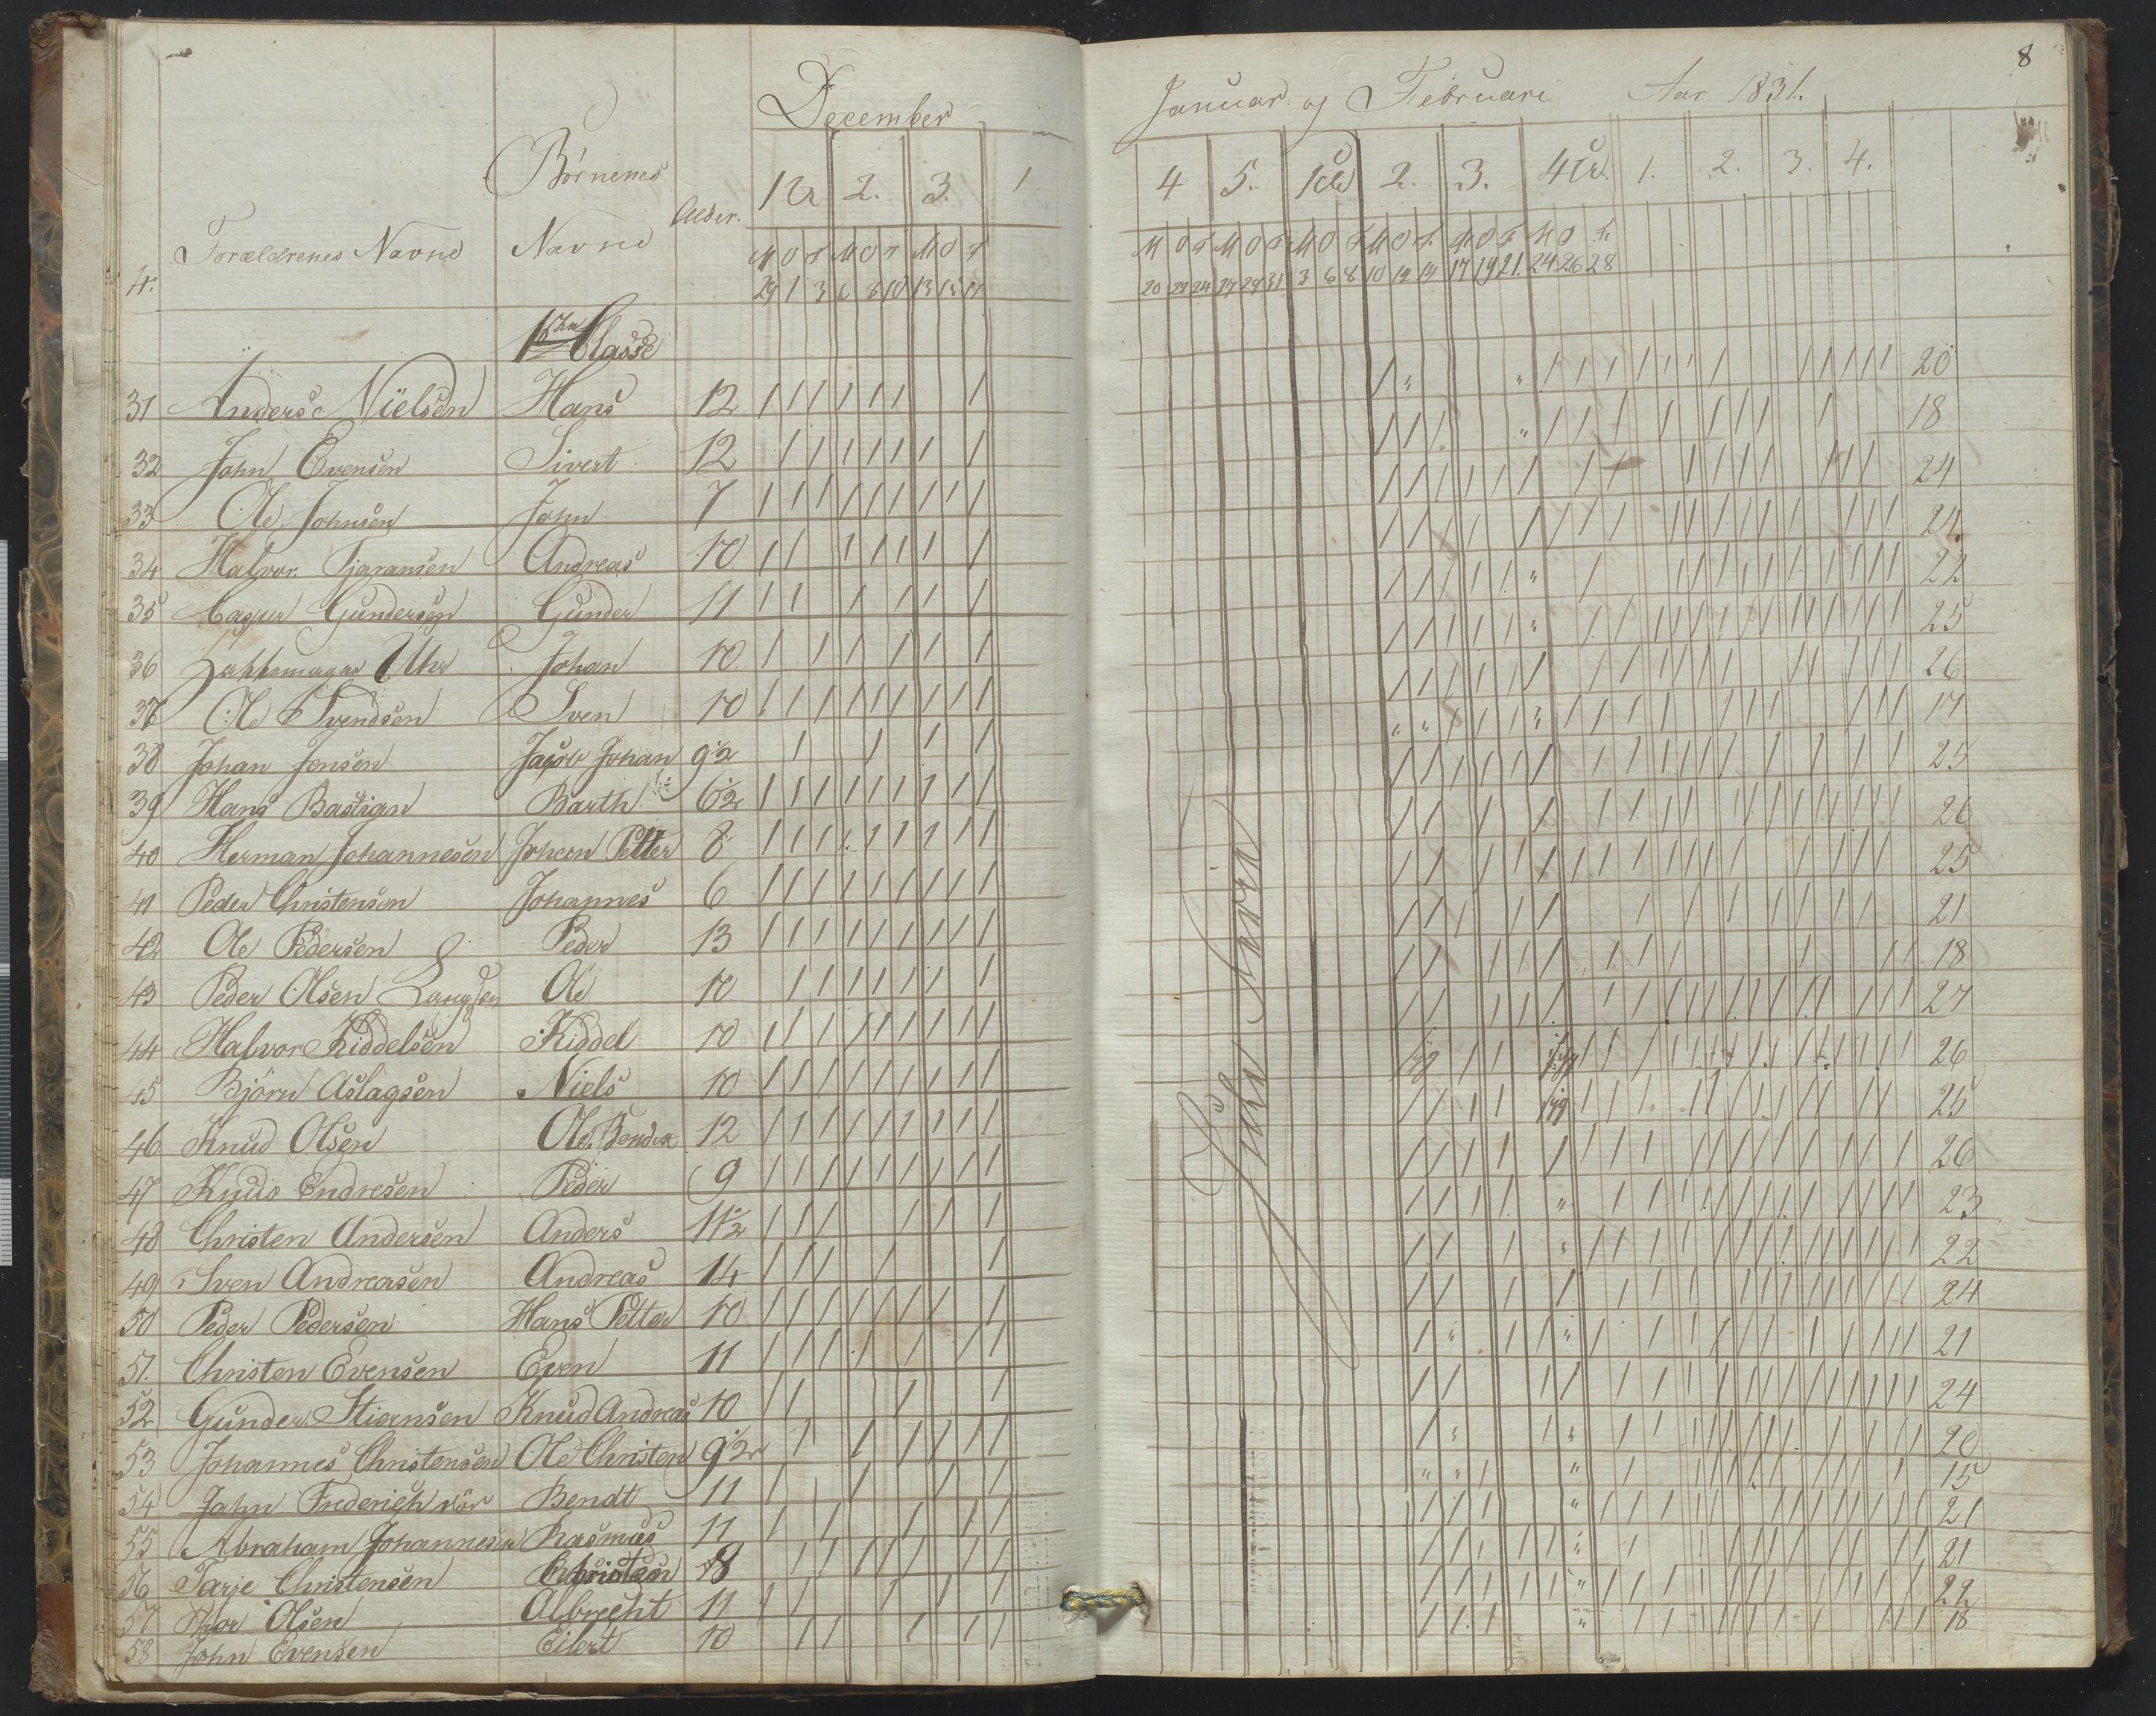 8
December
Januar og Februari Aar 1831.
Børnenes
1 U 2. 3. 1
4 5. 1 U 2. 3. 4 U. 1. 2. 3. 4.
4. Forældrenes Navne Navne Alder.
M O F M O F M O F
M O F M O F M O F M O F M O F M O F
29 1 3 6 8 10 13 15 17
20 22 24 27 29 31 3 6 8 10 12 14 17 19 21 24 26 28
1ste Classe
31 Anders Nielsen Hans 12 20
32 John Evensen Sivert 12 18
33 Ole Johnsen John 7 24
34 Halvor Tjøransen Andreas 10 24
35 Casper Gundersen Gunder 11 22
36 Uhr Johan 10 25
37 Ole Svendsen Sven 10 26
38 Johan Jensen Jacob Johan 9½ 17
39 Hans Bastian Barth 6½ 25
40 Herman Johannesen Johan Petter 8 26
41 Peder Christensen Johannes 6 25
42 Ole Pedersen Peder 13 21
43 Peder Olsen Ole 10 18
44 Halvor Kiddelsen Kiddel 10 27
45 Bjørn Aslagsen Niels 10 26
46 Knud Olsen Ole Bendix 12 25
47 Knud Endresen Peder 9 26
48 Christen Andersen Anders 11½ 23
49 Sven Andreasen Andreas 14 22
50 Peder Pedersen Hans Petter 10 24
51. Christen Evensen Even 11 21
52 Gunder Stiernsen Knud Andreas 10 24
53 Johannes Christensen Ole Christen 9½ 20
54 John Frederich Bendt 11 15
55 Abraham Johannesen Rasmus 11 21
56 Tarje Christensen Christen 8 21
57 Thor Olsen Albrecht 11 22
58 John Evensen Eilert 10 18
Jule Ferie